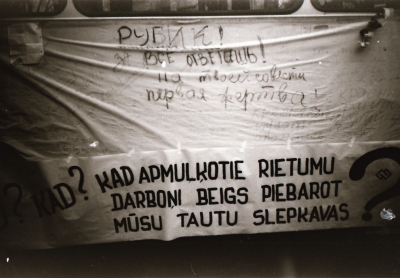 РУБИК!
ЗА ВСЕ ОТВЕТИШЬ!
На твоей совести
первая жертва!
? KAD? KAD APMULĶOTIE RIETUMU
DARBOŅI BEIGS PIEBAROT ?
MŪSU TAUTU SLEPKAVAS